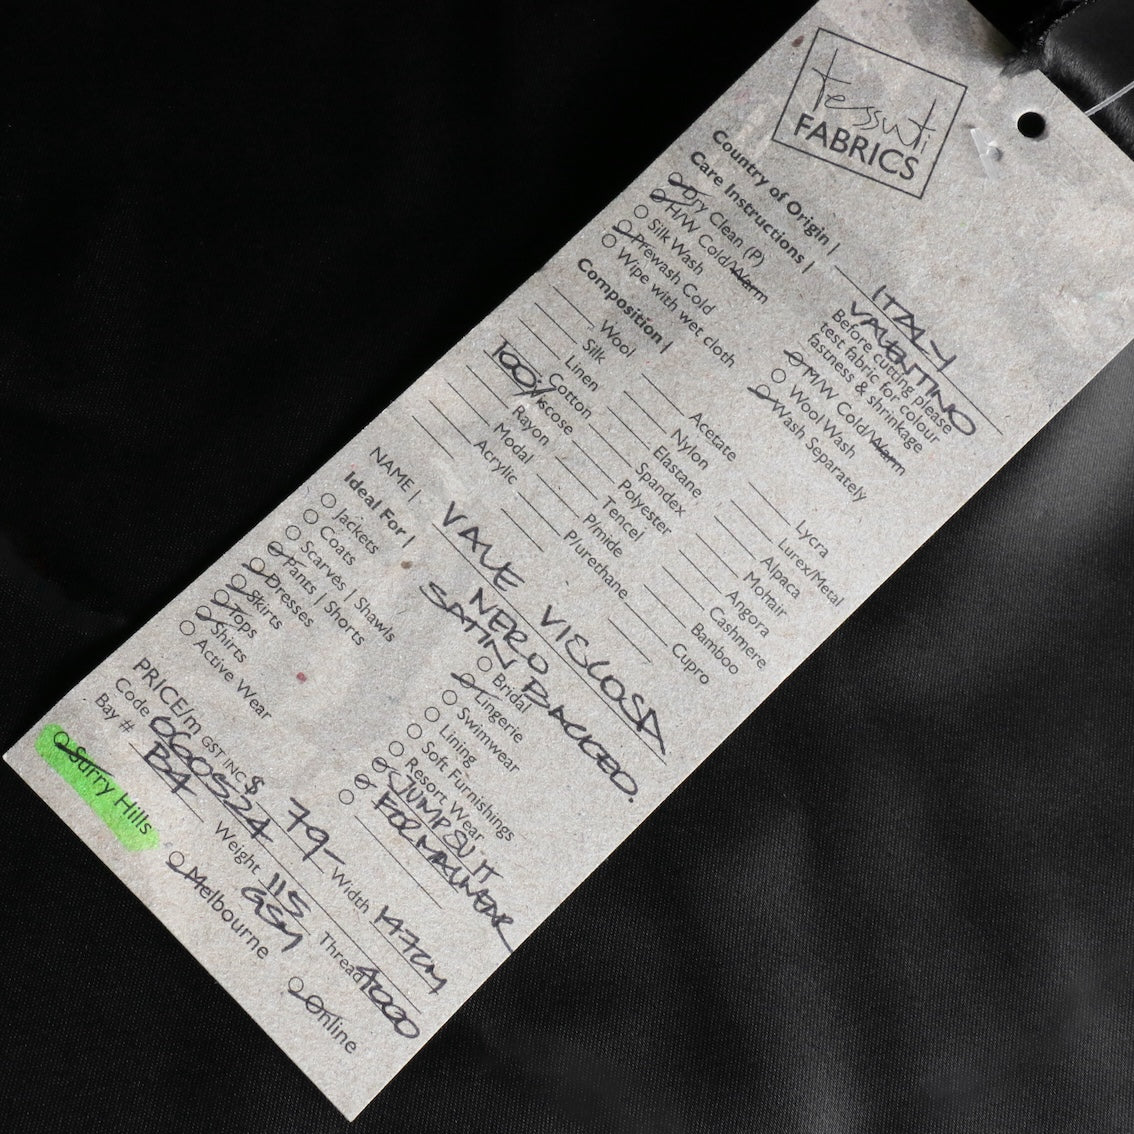 tessuti
FABRICS
Country of Origin | ITALY
VALENTINO
Care Instructions |
Before cutting please
test fabric for colour
fastness & shrinkage
Dry Clean (P)
H/W Cold/Warm
Silk Wash
Prewash Cold
Wipe with wet cloth
M/W Cold/Warm
Wool Wash
Wash Separately
Composition |
Wool
Silk
Linen
Cotton
100% Viscose
Rayon
Modal
Acrylic
Acetate
Nylon
Elastane
Spandex
Polyester
Tencel
P/mide
P/urethane
Lycra
Lurex/Metal
Alpaca
Mohair
Angora
Cashmere
Bamboo
Cupro
NAME | VALE VISCOSA
NERO
SATIN BACKED.
Ideal For |
Jackets
Coats
Scarves | Shawls
Pants | Shorts
Dresses
Skirts
Tops
Shirts
Active Wear
Bridal
Lingerie
Swimwear
Lining
Soft Furnishings
Resort Wear
JUMPSUIT
FORMALWEAR
PRICE/m GST INC $ 79- Width 147cm
Code 000524 Weight 115 GSM Thread A1000
Bay # B4
Surry Hills
Melbourne
Online